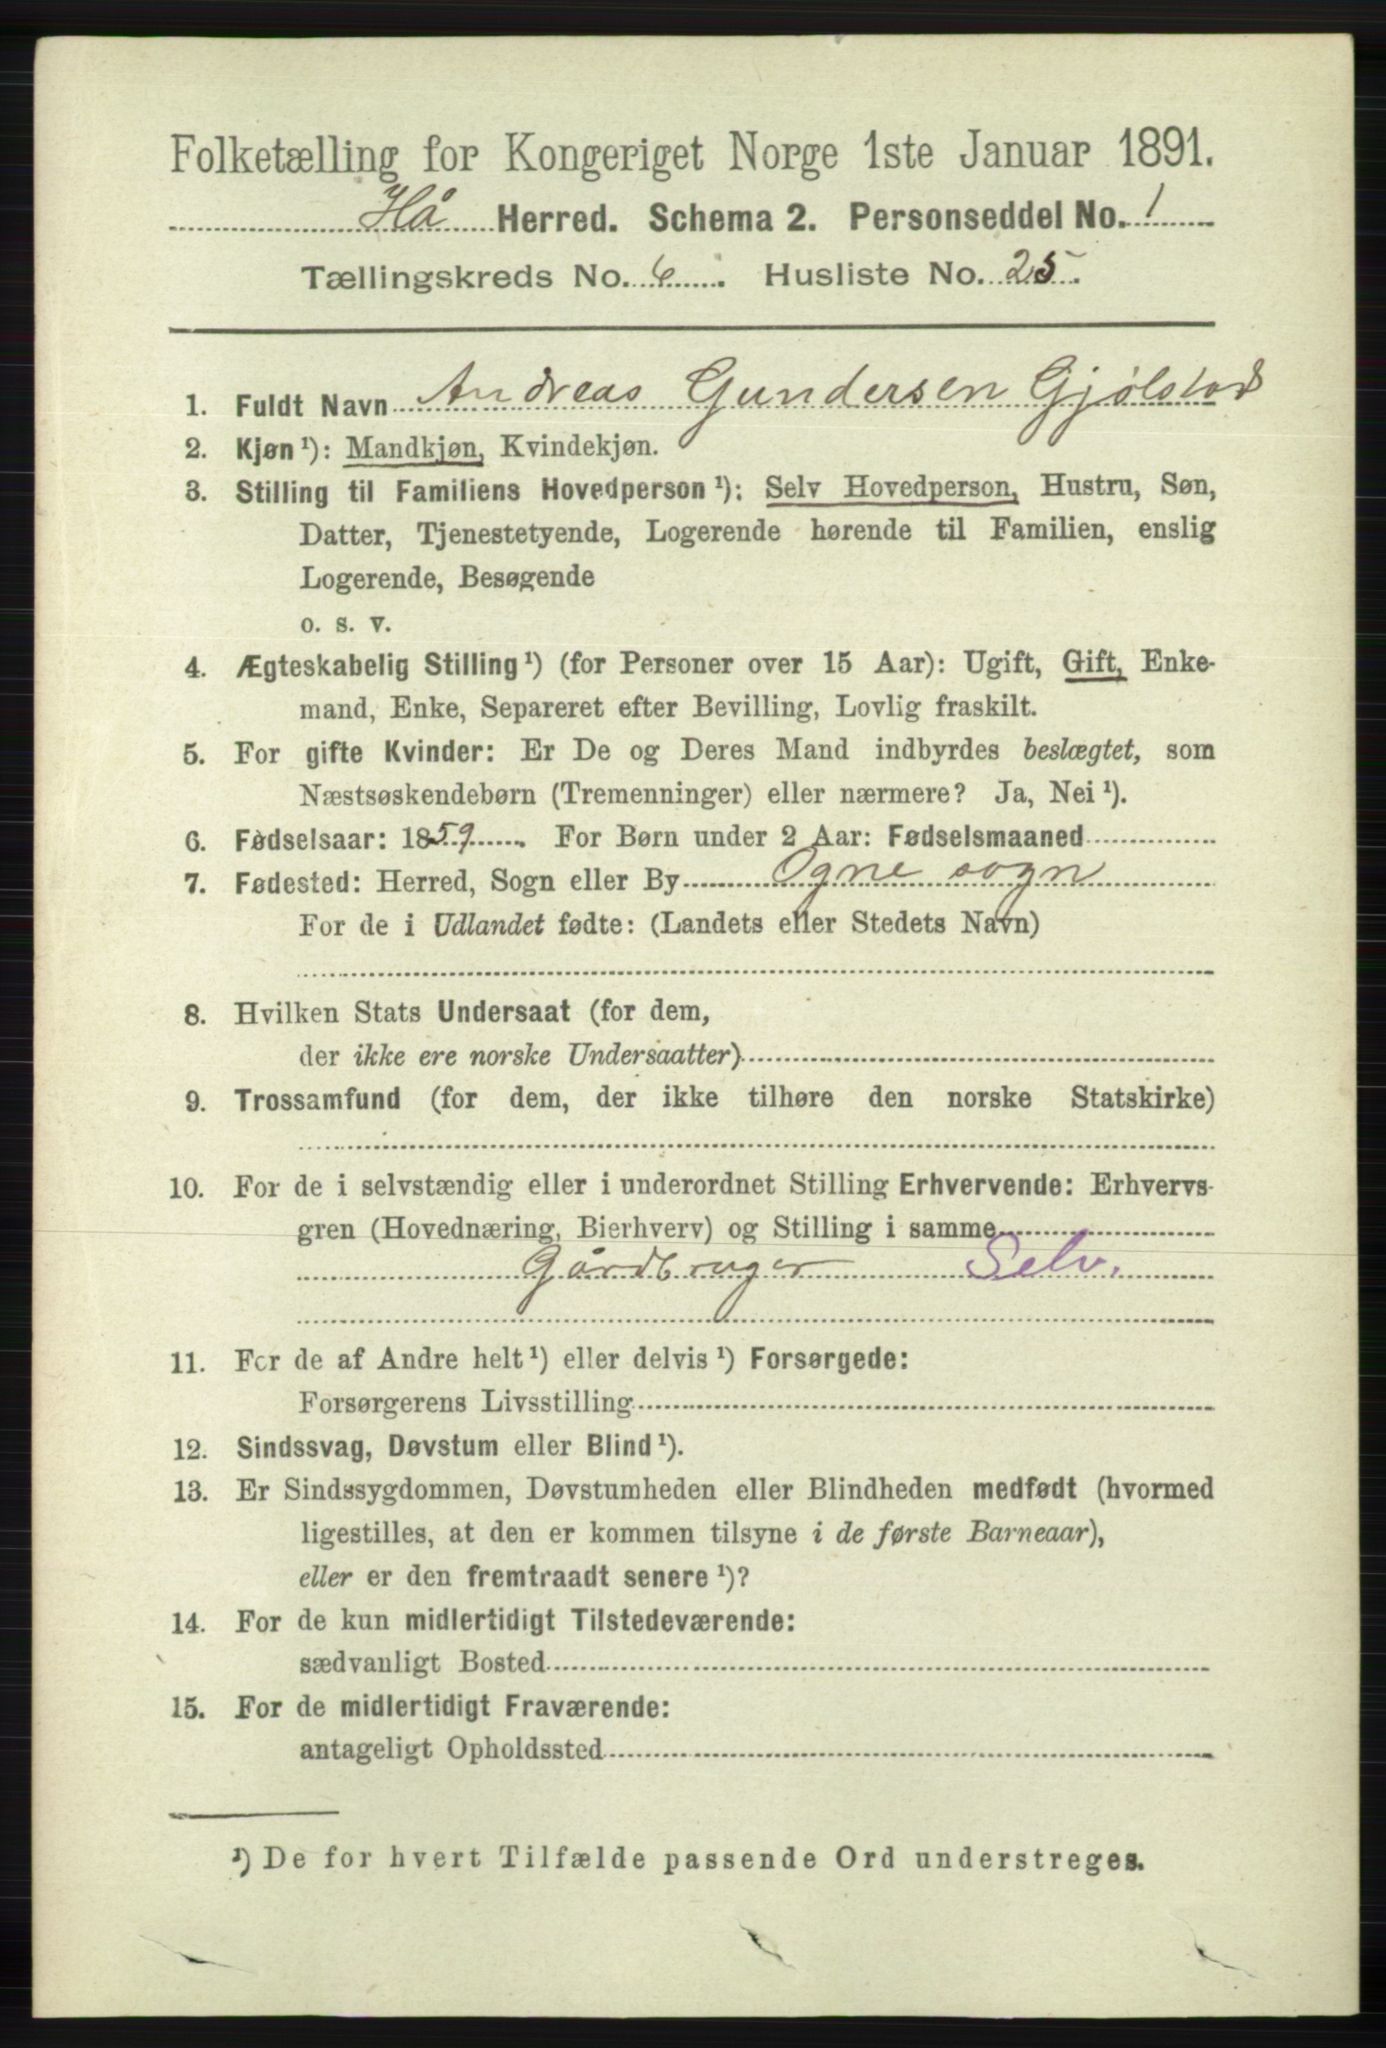 Folketælling for Kongeriget Norge 1ste Januar 1891.
Hå Herred. Schema 2. Personseddel No. 1
Tællingskreds No. 6. Husliste No. 25.
1. Fuldt Navn Andreas Gundersen Gjølstad
2. Kjøn¹): Mandkjøn, Kvindekjøn.
3. Stilling til Familiens Hovedperson¹): Selv Hovedperson, Hustru, Søn,
Datter, Tjenestetyende, Logerende hørende til Familien, enslig
Logerende, Besøgende
o. s. v.
4. Ægteskabelig Stilling¹) (for Personer over 15 Aar): Ugift, Gift, Enke-
mand, Enke, Separeret efter Bevilling, Lovlig fraskilt.
5. For gifte Kvinder: Er De og Deres Mand indbyrdes beslægtet, som
Næstsøskendebørn (Tremenninger) eller nærmere? Ja, Nei¹).
6. Fødselsaar: 1859. For Børn under 2 Aar: Fødselsmaaned
7. Fødested: Herred, Sogn eller By Ogne sogn
For de i Udlandet fødte: (Landets eller Stedets Navn)
8. Hvilken Stats Undersaat (for dem,
der ikke ere norske Undersaatter)
9. Trossamfund (for dem, der ikke tilhøre den norske Statskirke)
10. For de i selvstændig eller i underordnet Stilling Erhvervende: Erhvervs-
gren (Hovednæring, Bierhverv) og Stilling i samme
Gårdbruger Selv.
11. For de af Andre helt¹) eller delvis¹) Forsørgede:
Forsørgerens Livsstilling
12. Sindssvag, Døvstum eller Blind¹).
13. Er Sindssygdommen, Døvstumheden eller Blindheden medfødt (hvormed
ligestilles, at den er kommen tilsyne i de første Barneaar),
eller er den fremtraadt senere¹)?
14. For de kun midlertidigt Tilstedeværende:
sædvanligt Bosted
15. For de midlertidigt Fraværende:
antageligt Opholdssted
¹) De for hvert Tilfælde passende Ord understreges.